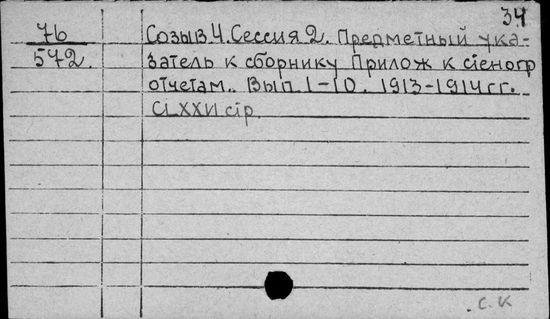 34
76
572.
Созыв 4. Сессия 2. Предметный ука-
затель к сборнику Прилож к стеногр
отчетам.. Вып 1-10. 1913-1914 гг.
CLXXVI стр.
с. к